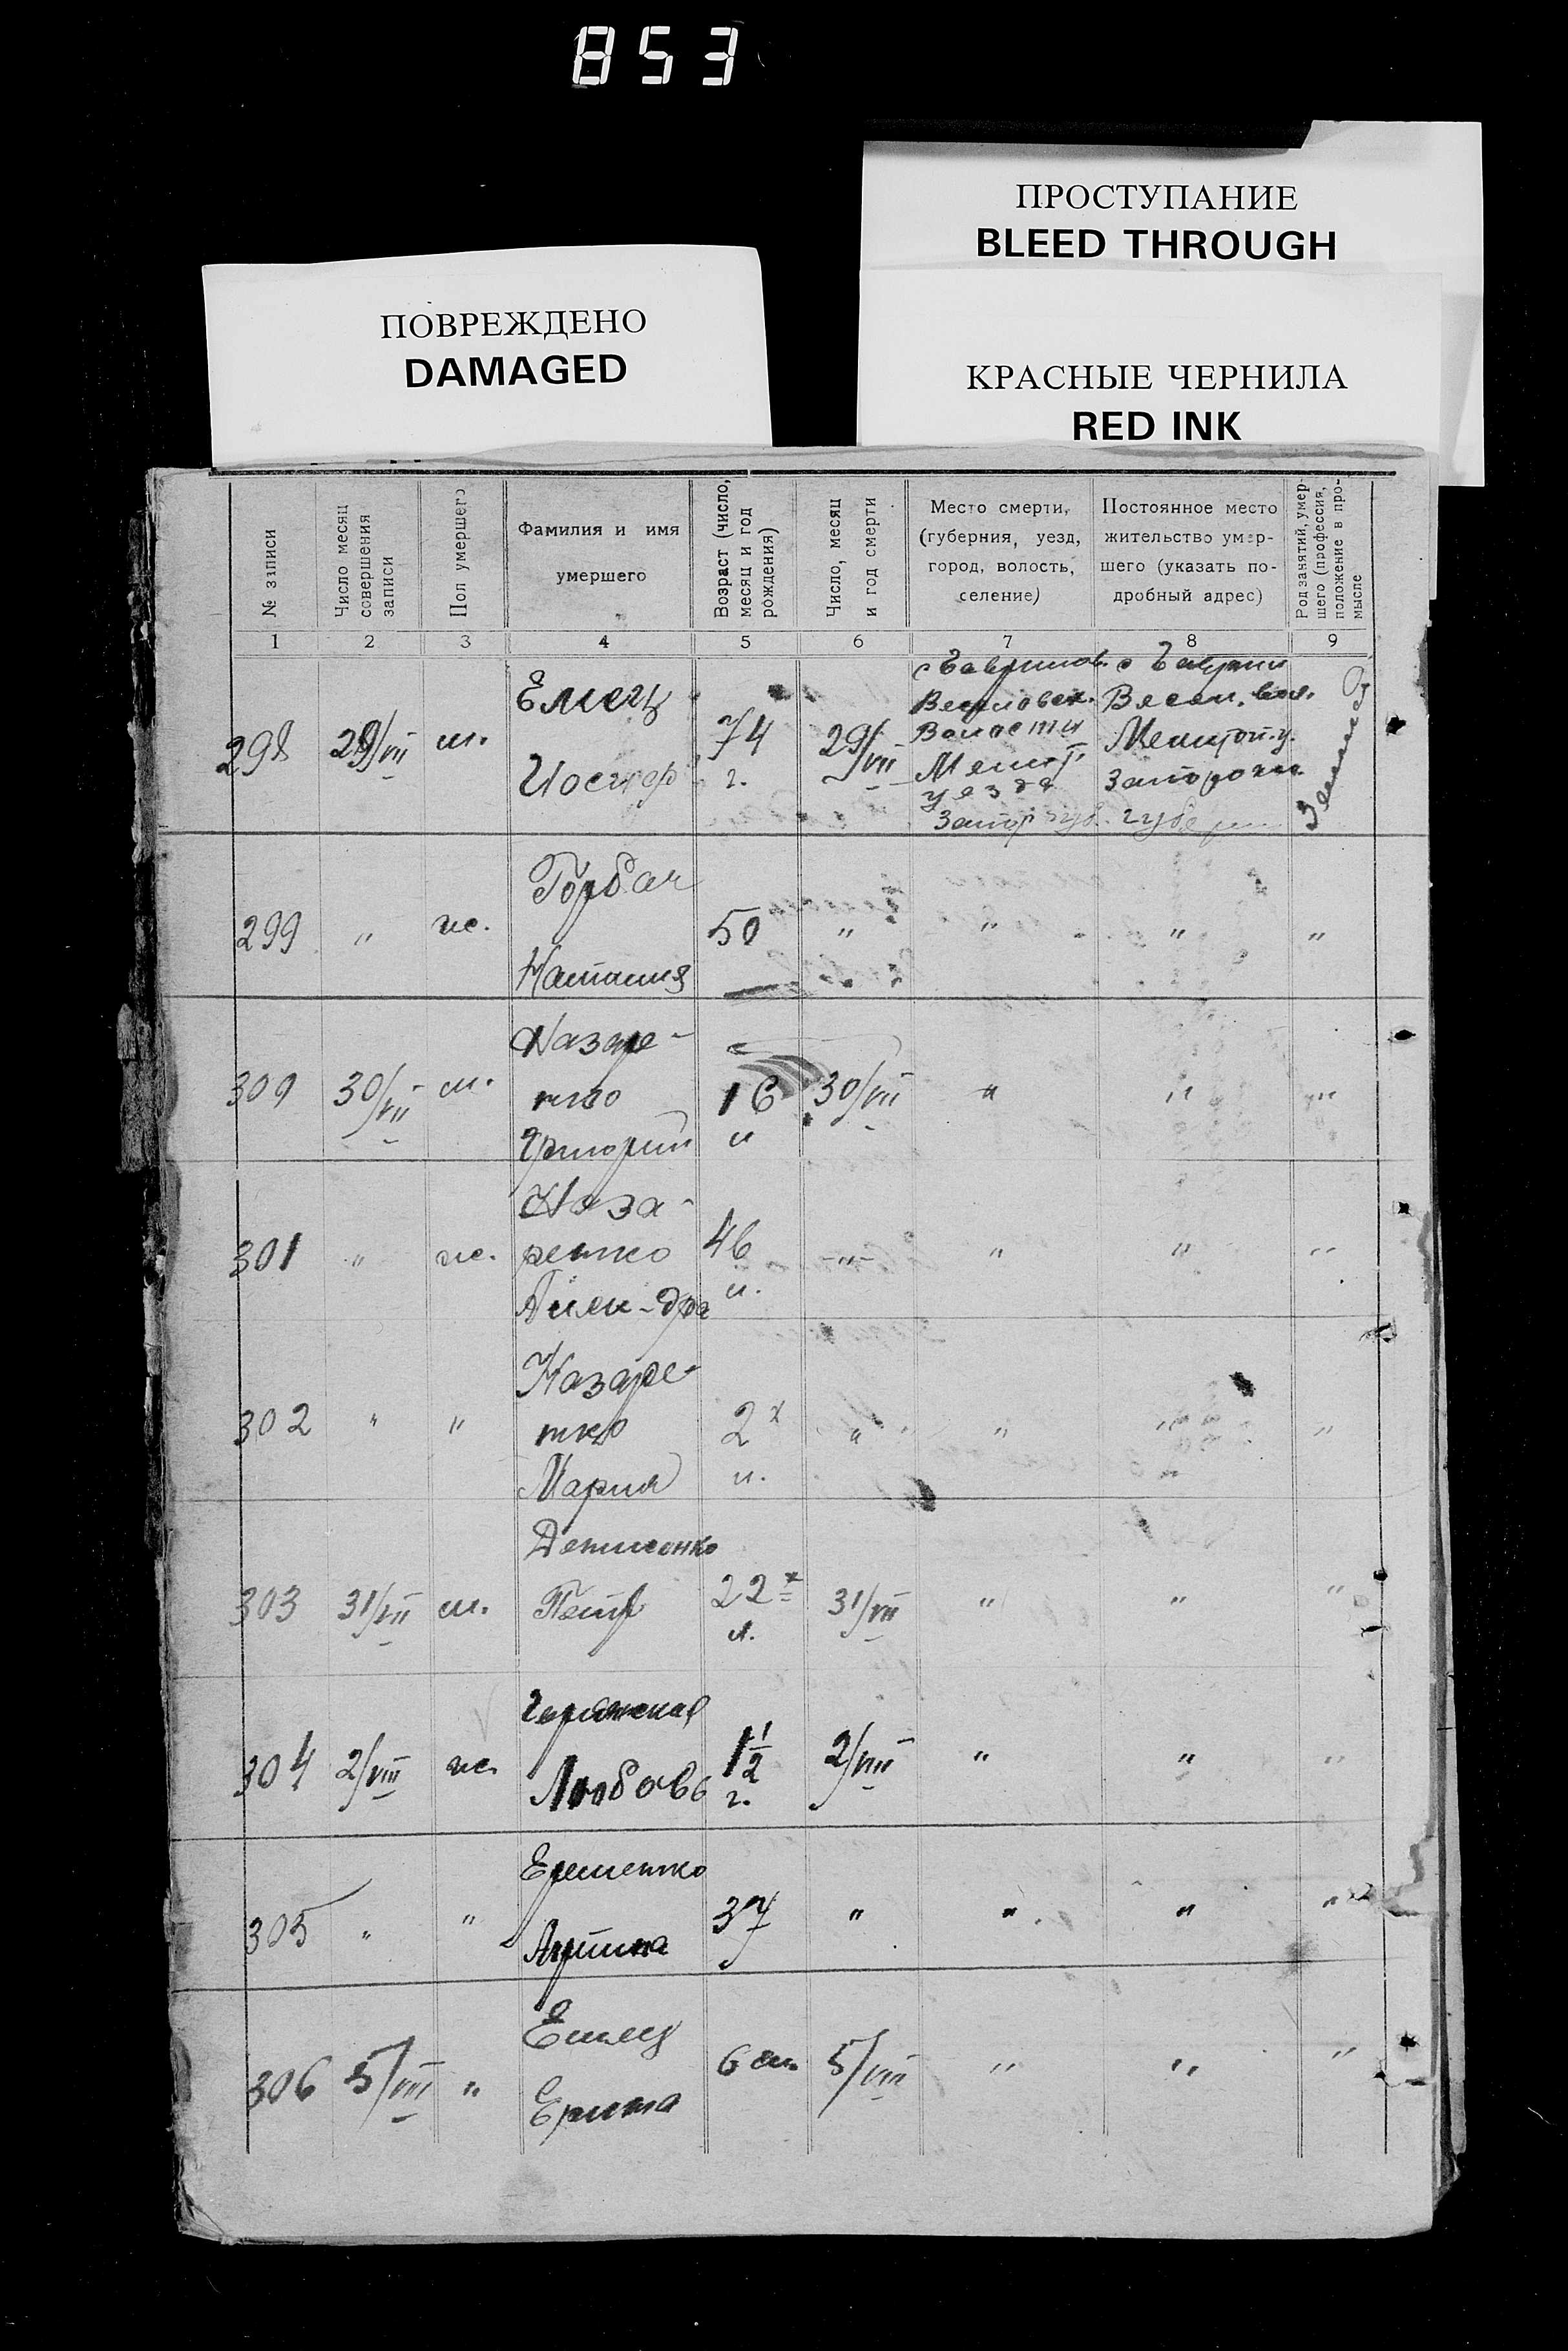 853
ПРОСТУПАНИЕ
BLEED THROUGH
ПОВРЕЖДЕНО
DAMAGED
КРАСНЫЕ ЧЕРНИЛА
RED INK
№ записи
Число месяц
совершения
записи
Пол умершего
Фамилия и имя
умершего
Возраст (число,
месяц и год
рождения)
Число, месяц
и год смерти
Место смерти,
(губерния, уезд,
город, волость,
селение)
Постоянное место
жительство умер-
шего (указать по-
дробный адрес)
Род занятий, умер-
шего (профессия,
положение в про-
мысле
1 2 3 4 5 6 7 8 9
298 29/VII м. Емец
Иосиф 74
г. 29/VII
Волости
уезда
299 " ж. Горбач
Наталия 50 " " " "
300 30/VII м. Назаре-
нко
Григорий 16 30/VII " " "
301 " ж. Наза-
ренко 46 " " " "
302 " " Назаре-
нко
Мария 2 " " " "
303 31/VII м. Денисенко
Петр 22
л. 31/VII " " "
304 2/VIII ж.
Любовь 1½
г. 2/VIII " " "
305 " " Еременко 37 " " " "
306 5/VIII " Емец 6 м. 5/VIII " " "